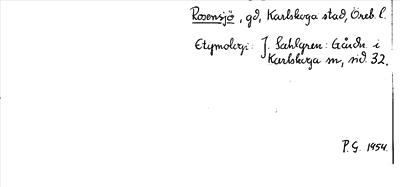 Rosensjö, gd, Karlskoga stad, Öreb. l.
Etymologi: J. Sahlgren: Gårdn. i
Karlskoga sn, sid. 32.
P. G. 1954.